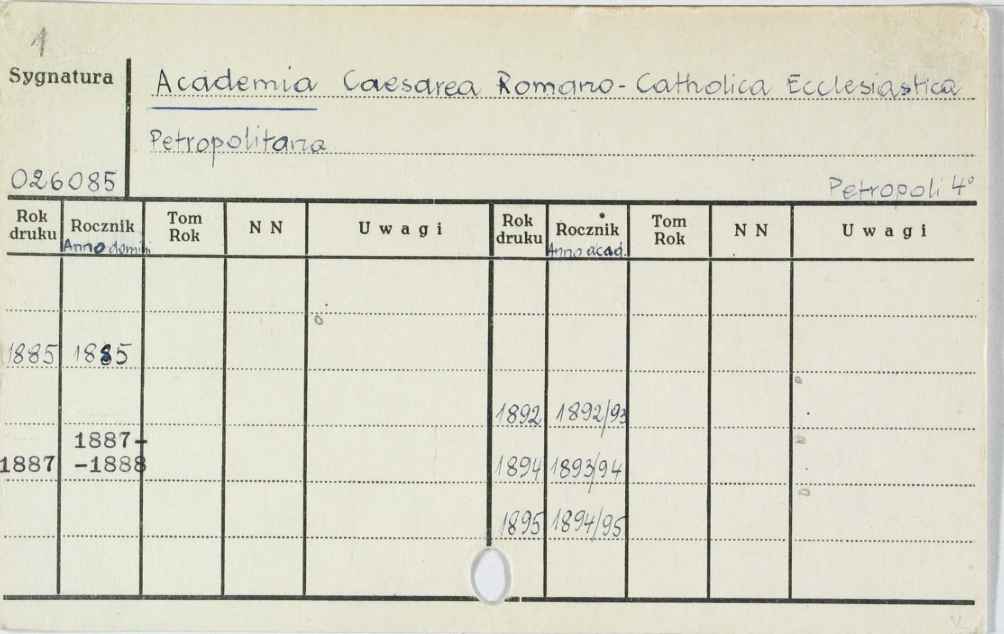 1
Sygnatura
Academia Caesarea Romano-Catholica Ecclesiastica
Petropolitana
026085
Petropoli 4°
Rok druku Rocznik Tom Rok N N Uwagi Rok druku Rocznik Tom Rok N N Uwagi
Anno domini Anno acad.
1885 1885
1892 1892/93
1887-
1887 -1888
1894 1893/94
1895 1894/95